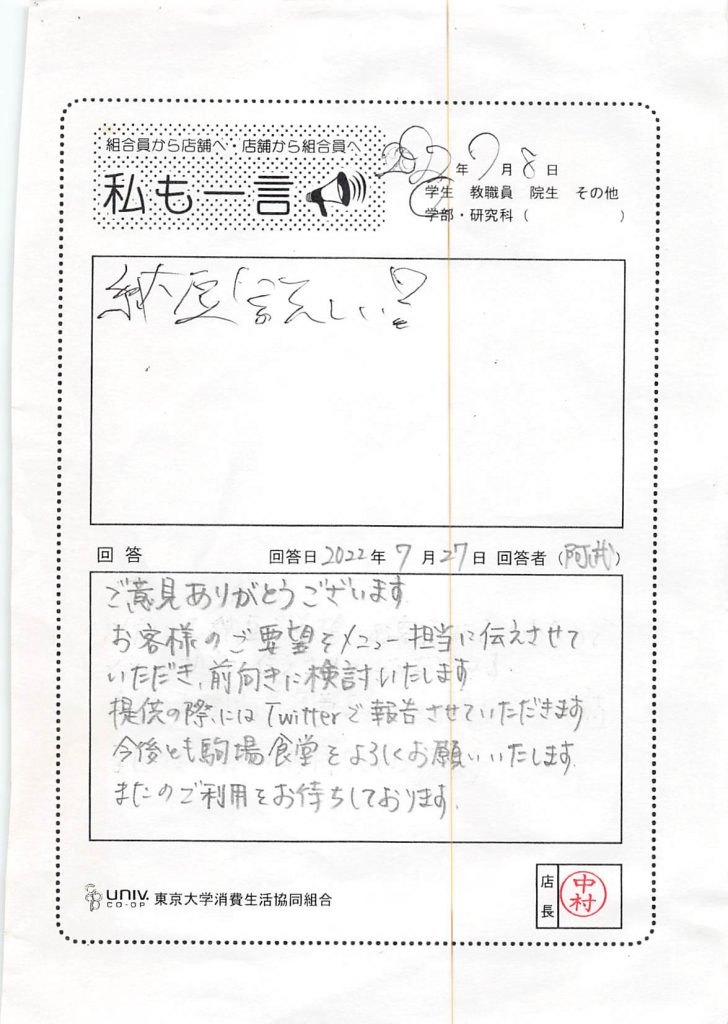 組合員から店舗へ・店舗から組合員へ
私も一言
2022年7月8日
学生 教職員 院生 その他
学部・研究科( )
納豆欲しい!
回答 回答日2022年7月27日 回答者(阿武)
ご意見ありがとうございます
お客様のご要望をメニュー担当に伝えさせて
いただき、前向きに検討いたします
提供の際にはTwitterで報告させていただきます
今後とも駒場食堂をよろしくお願いいたします.
またのご利用をお待ちしております.
UNIV. CO-OP 東京大学消費生活協同組合
店長
中村